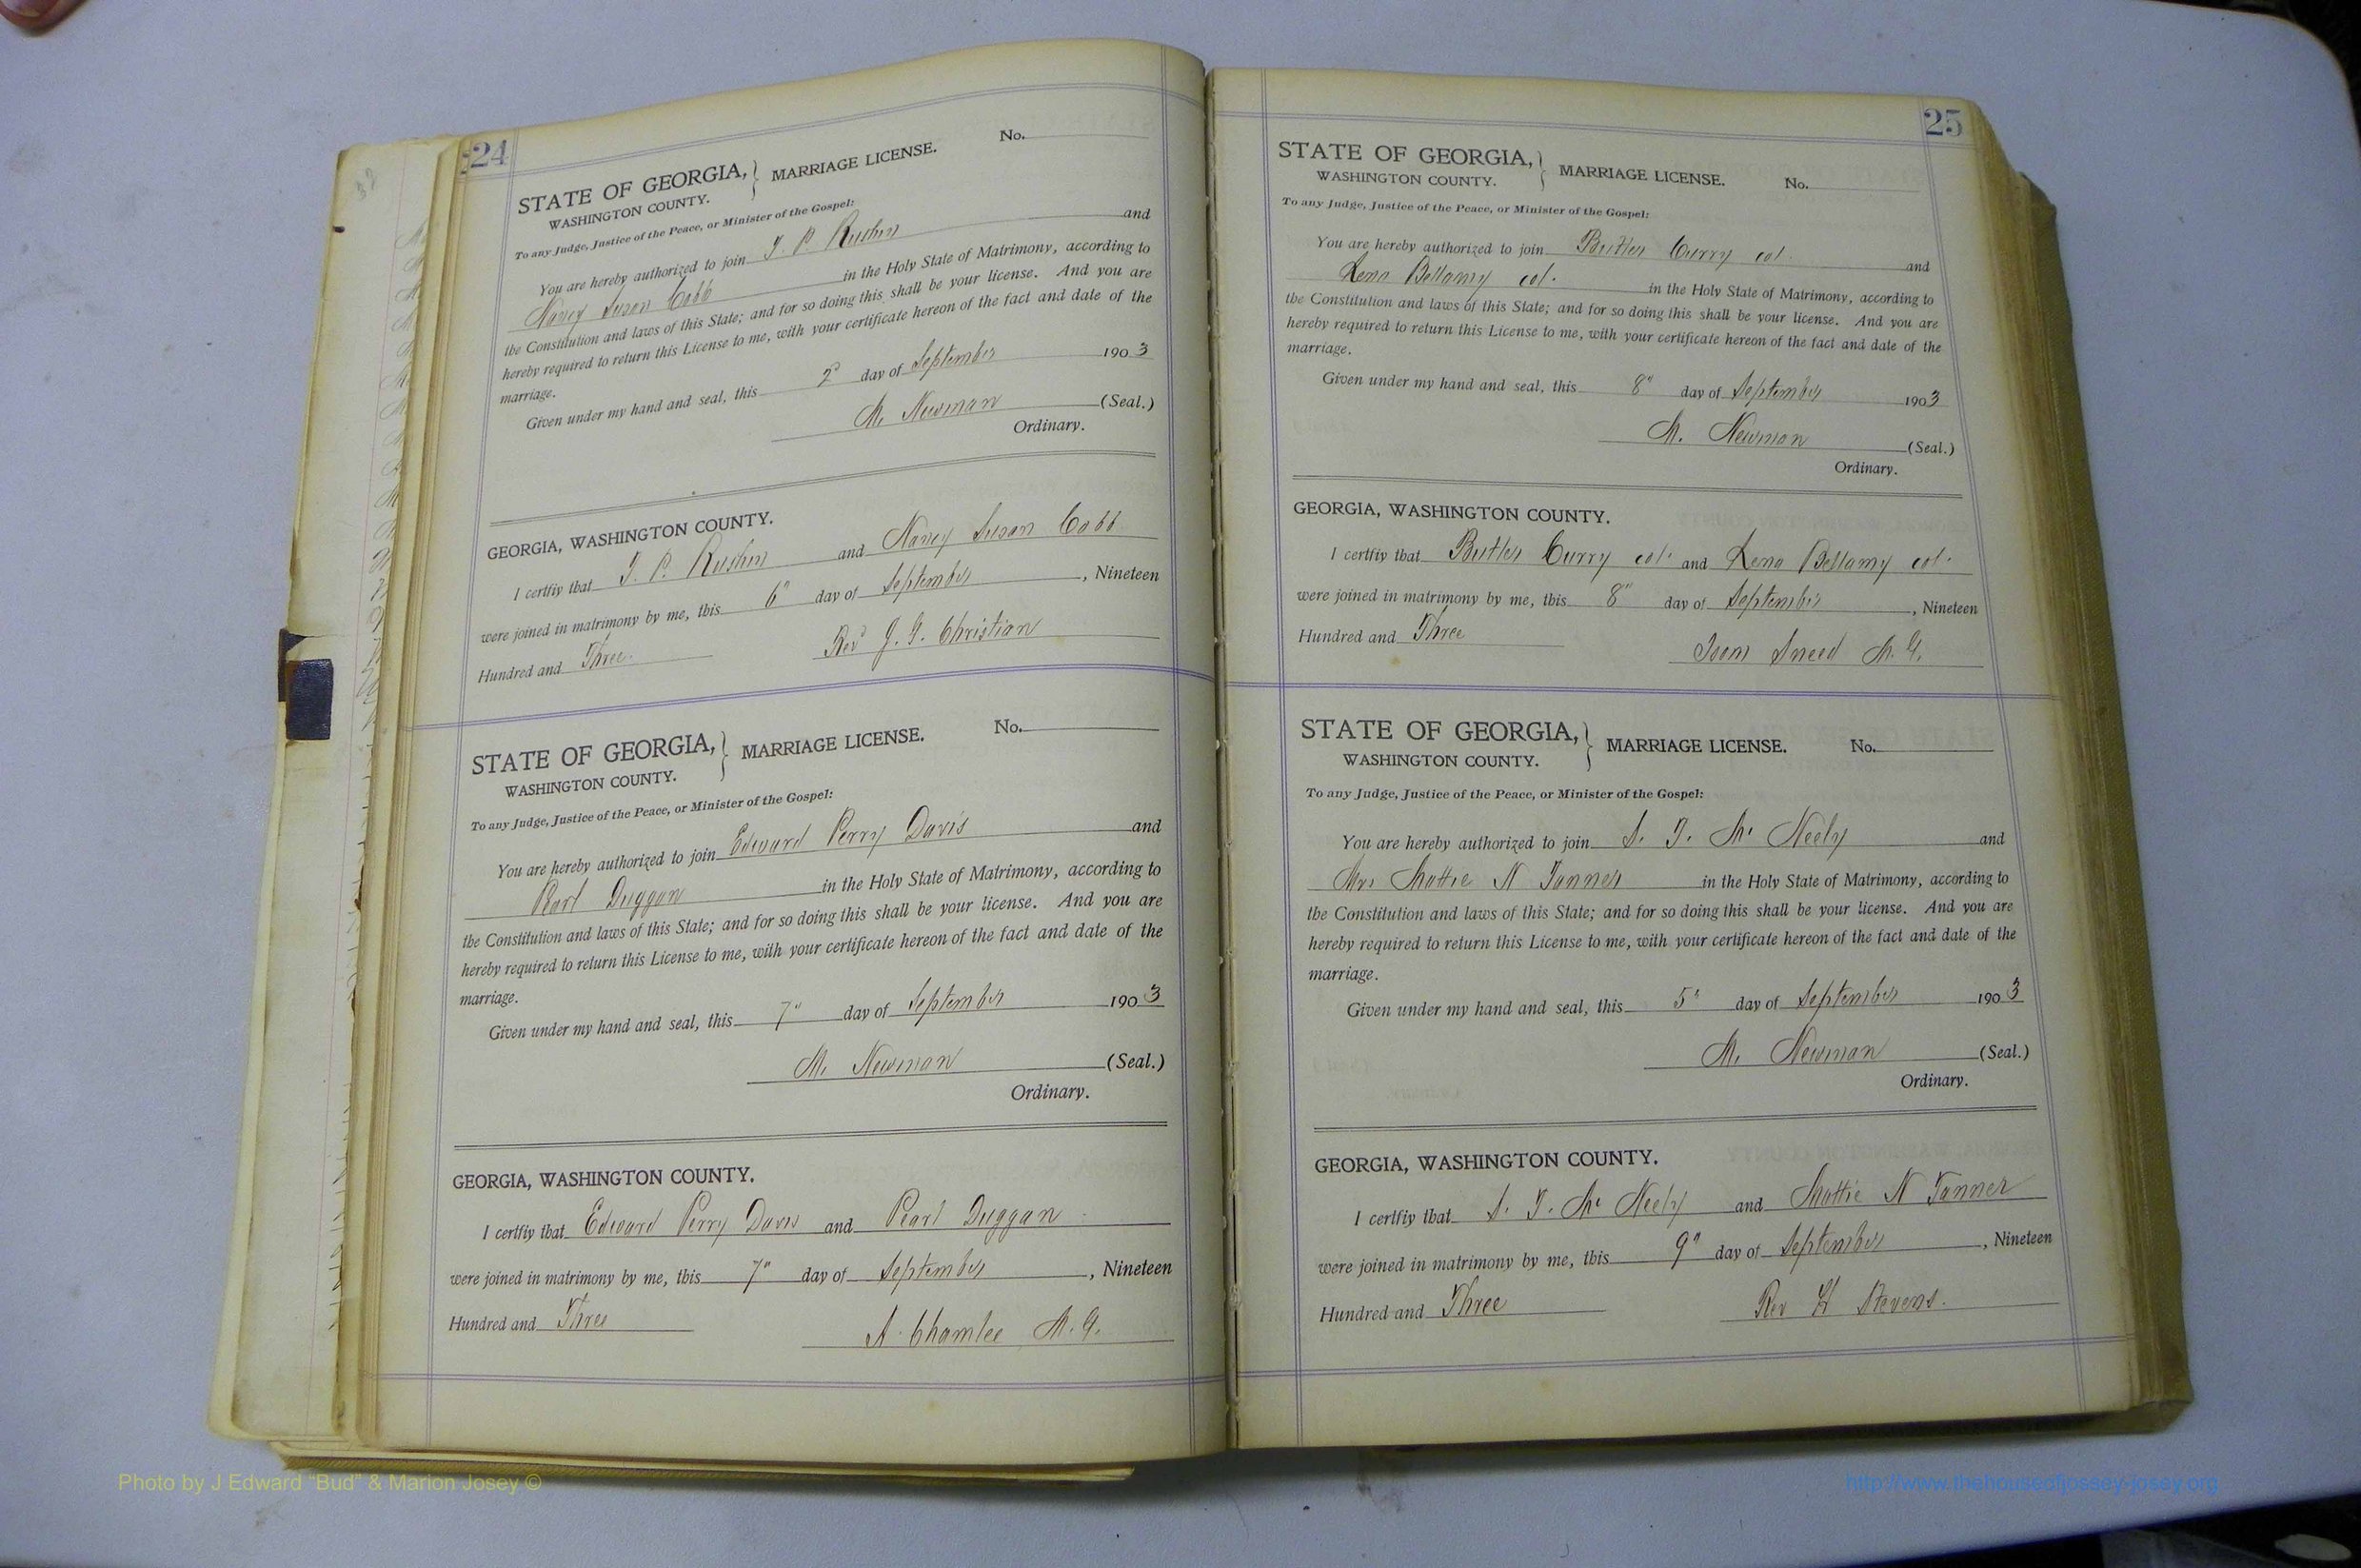 24
No.
STATE OF GEORGIA, } MARRIAGE LICENSE.
WASHINGTON COUNTY.
To any Judge, Justice of the Peace, or Minister of the Gospel:
You are hereby authorized to join T. P. Rushin and
Nancy Susan Cobb in the Holy State of Matrimony, according to
the Constitution and laws of this State; and for so doing this shall be your license. And you are
hereby required to return this License to me, with your certificate hereon of the fact and date of the
marriage.
Given under my hand and seal, this 2" day of September 1903
M. Newman (Seal.)
Ordinary.
GEORGIA, WASHINGTON COUNTY.
I certfiy that T. P. Rushin and Nancy Susan Cobb
were joined in matrimony by me, this 6" day of September, Nineteen
Hundred and Three. Rev J. G. Christian
No.
STATE OF GEORGIA, } MARRIAGE LICENSE.
WASHINGTON COUNTY.
To any Judge, Justice of the Peace, or Minister of the Gospel:
You are hereby authorized to join Edward Perry Davis and
Pearl Duggan in the Holy State of Matrimony, according to
the Constitution and laws of this State; and for so doing this shall be your license. And you are
hereby required to return this License to me, with your certificate hereon of the fact and date of the
marriage.
Given under my hand and seal, this 7" day of September 1903
M. Newman (Seal.)
Ordinary.
GEORGIA, WASHINGTON COUNTY.
I certfiy that Edward Perry Davis and Pearl Duggan
were joined in matrimony by me, this 7" day of September, Nineteen
Hundred and Three A. Chamlee M.G.
25
STATE OF GEORGIA, } MARRIAGE LICENSE. No.
WASHINGTON COUNTY.
To any Judge, Justice of the Peace, or Minister of the Gospel:
You are hereby authorized to join Butler Curry col. and
Lena Bellamy col. in the Holy State of Matrimony, according to
the Constitution and laws of this State; and for so doing this shall be your license. And you are
hereby required to return this License to me, with your certificate hereon of the fact and date of the
marriage.
Given under my hand and seal, this 8" day of September 1903
M. Newman (Seal.)
Ordinary.
GEORGIA, WASHINGTON COUNTY.
I certfiy that Butler Curry col. and Lena Bellamy col.
were joined in matrimony by me, this 8" day of September, Nineteen
Hundred and Three Isom Sneed M.G.
STATE OF GEORGIA, } MARRIAGE LICENSE. No.
WASHINGTON COUNTY.
To any Judge, Justice of the Peace, or Minister of the Gospel:
You are hereby authorized to join S. T. Mc Neely and
Mrs Mattie N Tanner in the Holy State of Matrimony, according to
the Constitution and laws of this State; and for so doing this shall be your license. And you are
hereby required to return this License to me, with your certificate hereon of the fact and date of the
marriage.
Given under my hand and seal, this 5" day of September 1903
M. Newman (Seal.)
Ordinary.
GEORGIA, WASHINGTON COUNTY.
I certfiy that S. T. Mc Neely and Mattie N Tanner
were joined in matrimony by me, this 9" day of September, Nineteen
Hundred and Three Rev H Stevens.
Photo by J Edward "Bud" & Marion Josey ©
http://www.thehouseofjossey-josey.org